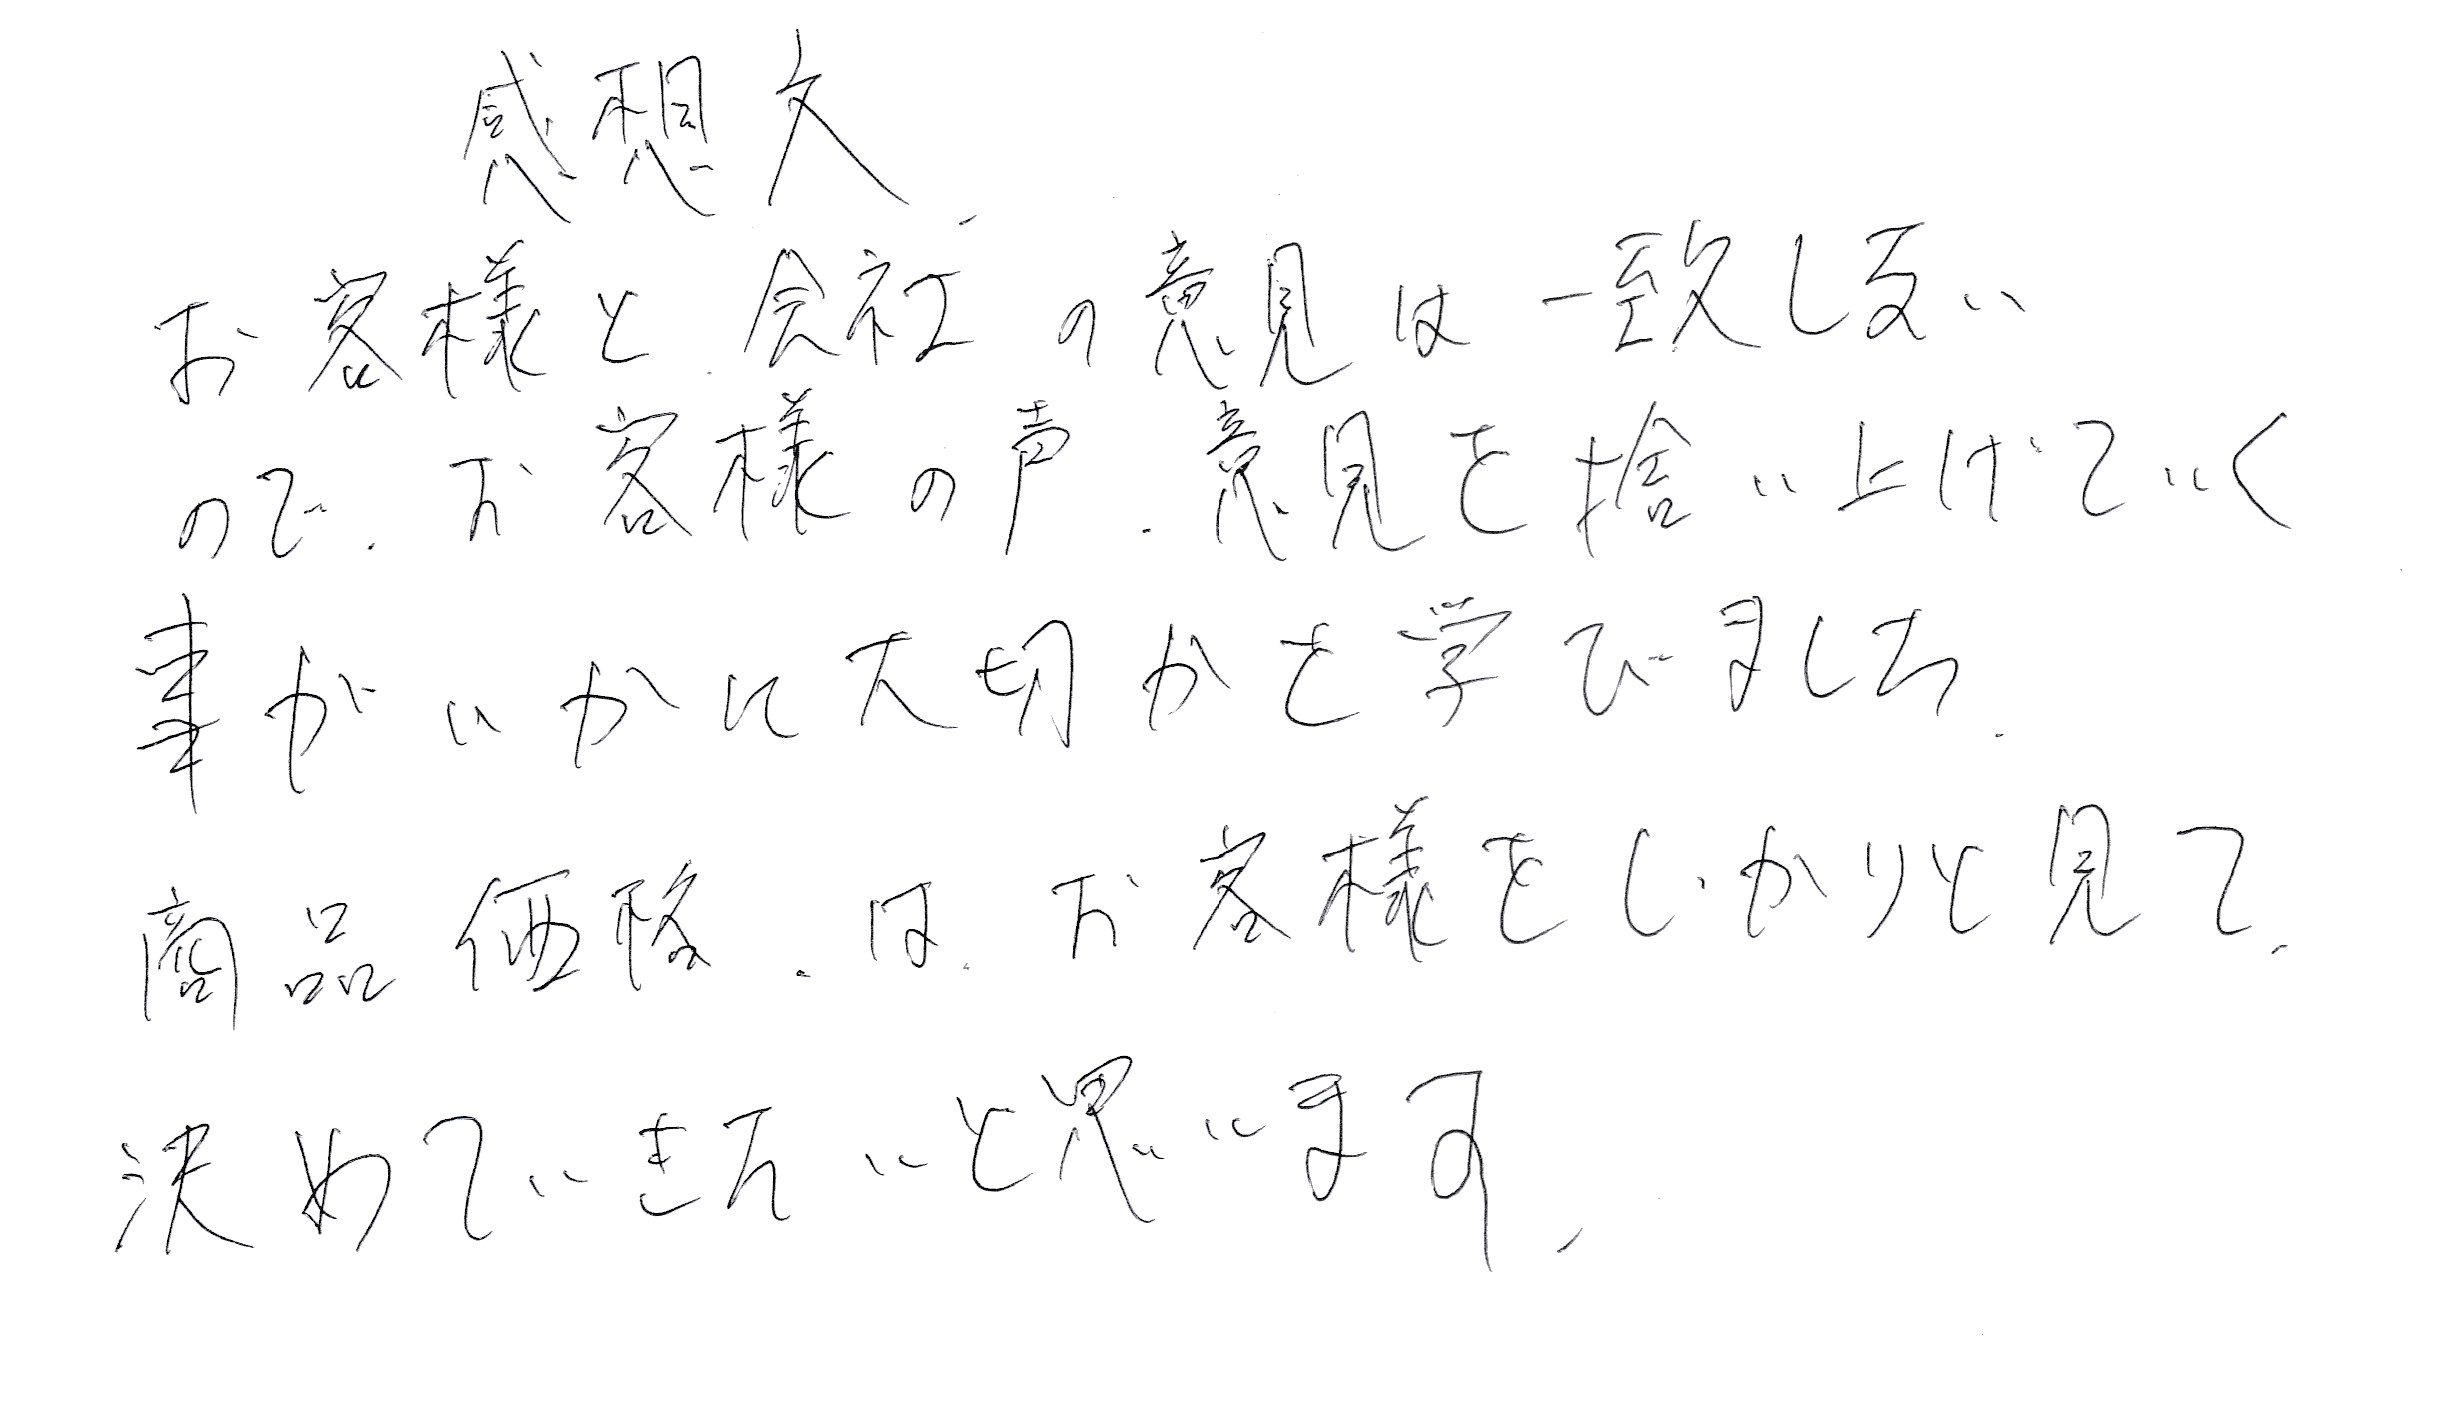 感想文
お客様と、会社の意見は一致しない
ので、お客様の声、意見を捨い上げていく
事がいかに大切かを学びました。
商品価格、は、お客様をしっかりと見て、
決めていきたいと思います。